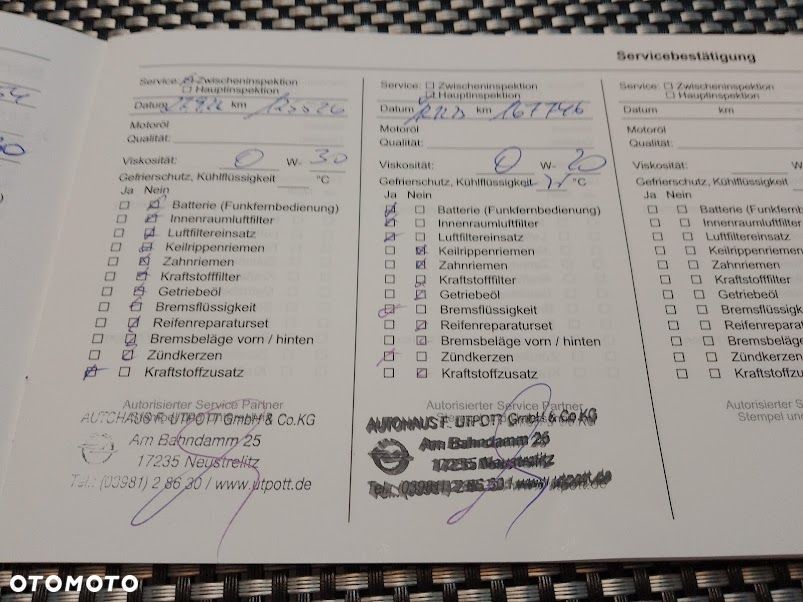 Servicebestätigung
Service: Zwischeninspektion
Hauptinspektion
Datum km
Motoröl
Qualität:
Viskosität: 0 W- 30
Gefrierschutz, Kühlflüssigkeit °C
Ja Nein
Batterie (Funkfernbedienung)
Innenraumluftfilter
Luftfiltereinsatz
Keilrippenriemen
Zahnriemen
Kraftstofffilter
Getriebeöl
Bremsflüssigkeit
Reifenreparaturset
Bremsbeläge vorn / hinten
Zündkerzen
Kraftstoffzusatz
Autorisierter Service Partner
AUTOHAUS F. UTPOTT GmbH & Co.KG
Am Bahndamm 25
17235 Neustrelitz
Tel.: (03981) 2 86 30 / www.utpott.de
Service: Zwischeninspektion
Hauptinspektion
Datum km 167746
Motoröl
Qualität:
Viskosität: 0 W- 20
Gefrierschutz, Kühlflüssigkeit °C
Ja Nein
Batterie (Funkfernbedienung)
Innenraumluftfilter
Luftfiltereinsatz
Keilrippenriemen
Zahnriemen
Kraftstofffilter
Getriebeöl
Bremsflüssigkeit
Reifenreparaturset
Bremsbeläge vorn / hinten
Zündkerzen
Kraftstoffzusatz
Autorisierter Service Partner
AUTOHAUS F. UTPOTT GmbH & Co.KG
Am Bahndamm 25
17235 Neustrelitz
Tel.: (03981) 2 86 30 / www.utpott.de
Service: Zwischeninspektion
Hauptinspektion
Datum km
Motoröl
Qualität:
Viskosität: W
Gefrierschutz, Kühlflüssigke
Ja Nein
Batterie (Funkfernb
Innenraumluftfilter
Luftfiltereinsatz
Keilrippenriemen
Zahnriemen
Kraftstofffilter
Getriebeöl
Bremsflüssigk
Reifenreparatu
Bremsbeläge
Zündkerzen
Kraftstoffzu
Autorisierter S
Stempel un
OTOMOTO